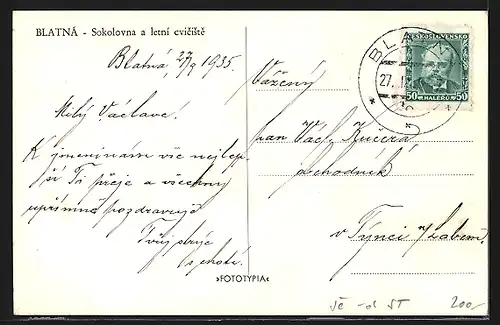 BLATNÁ - Sokolovna a letní cvičiště
Blatná, 27/9 1935.
Milý Václave!
K jmeninám vše nejlep-
ší Ti přeje a všechny
upřímně pozdravuje
Tvůj strýc
s chotí.
»FOTOTYPIA«
BLATNÁ
27. I
ČESKOSLOVENSKO
50 HALÉŘŮ 50
Vážený
pan Václ. Kučera
obchodník
v Týnci n/Labem.
200,-